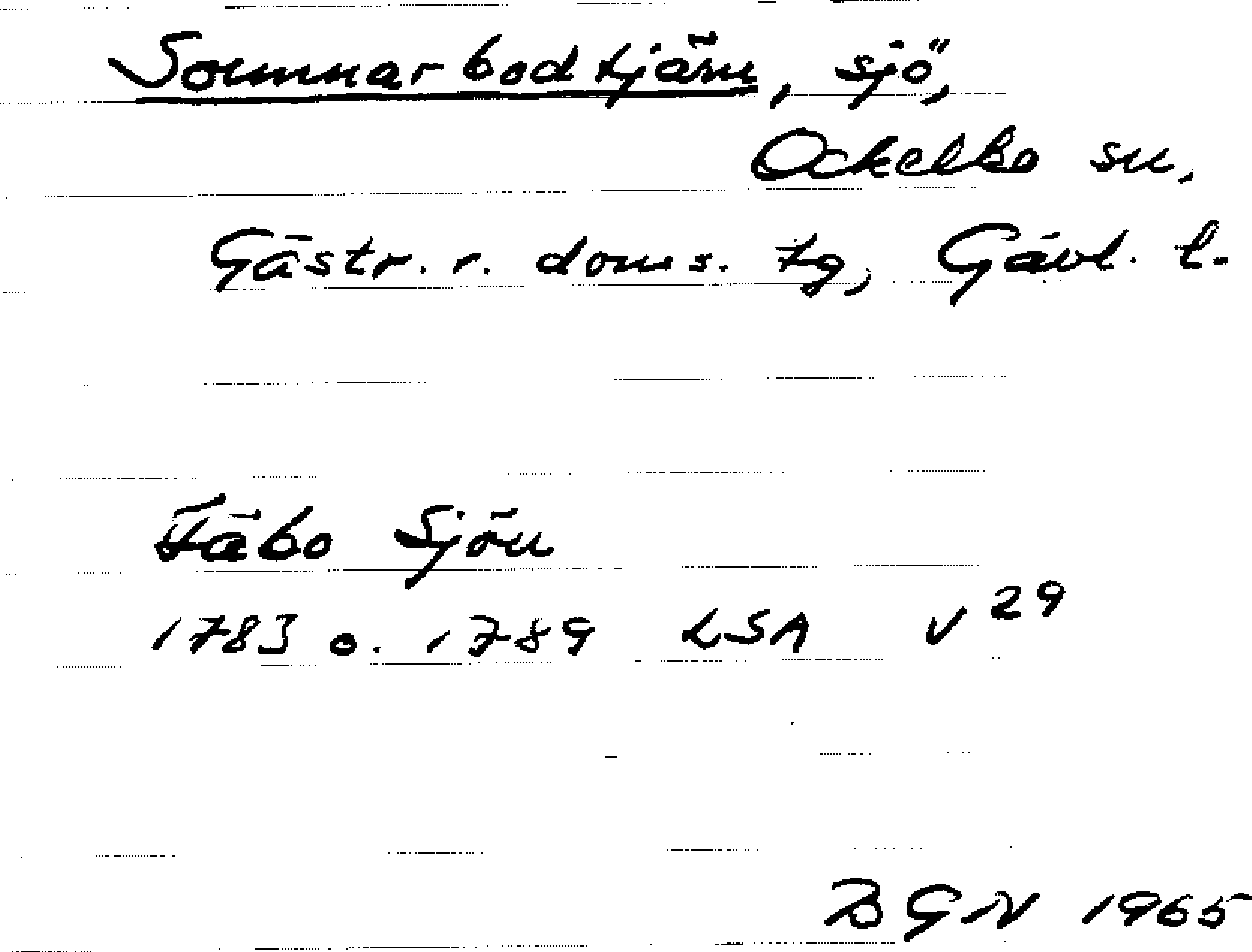 Sommarbodtjärn, sjö,
Ockelbo sn,
Gästr. r. doms. tg, Gävl. l.
Fäbo Sjön
1783 o. 1789 LSA V 29
BGN 1965